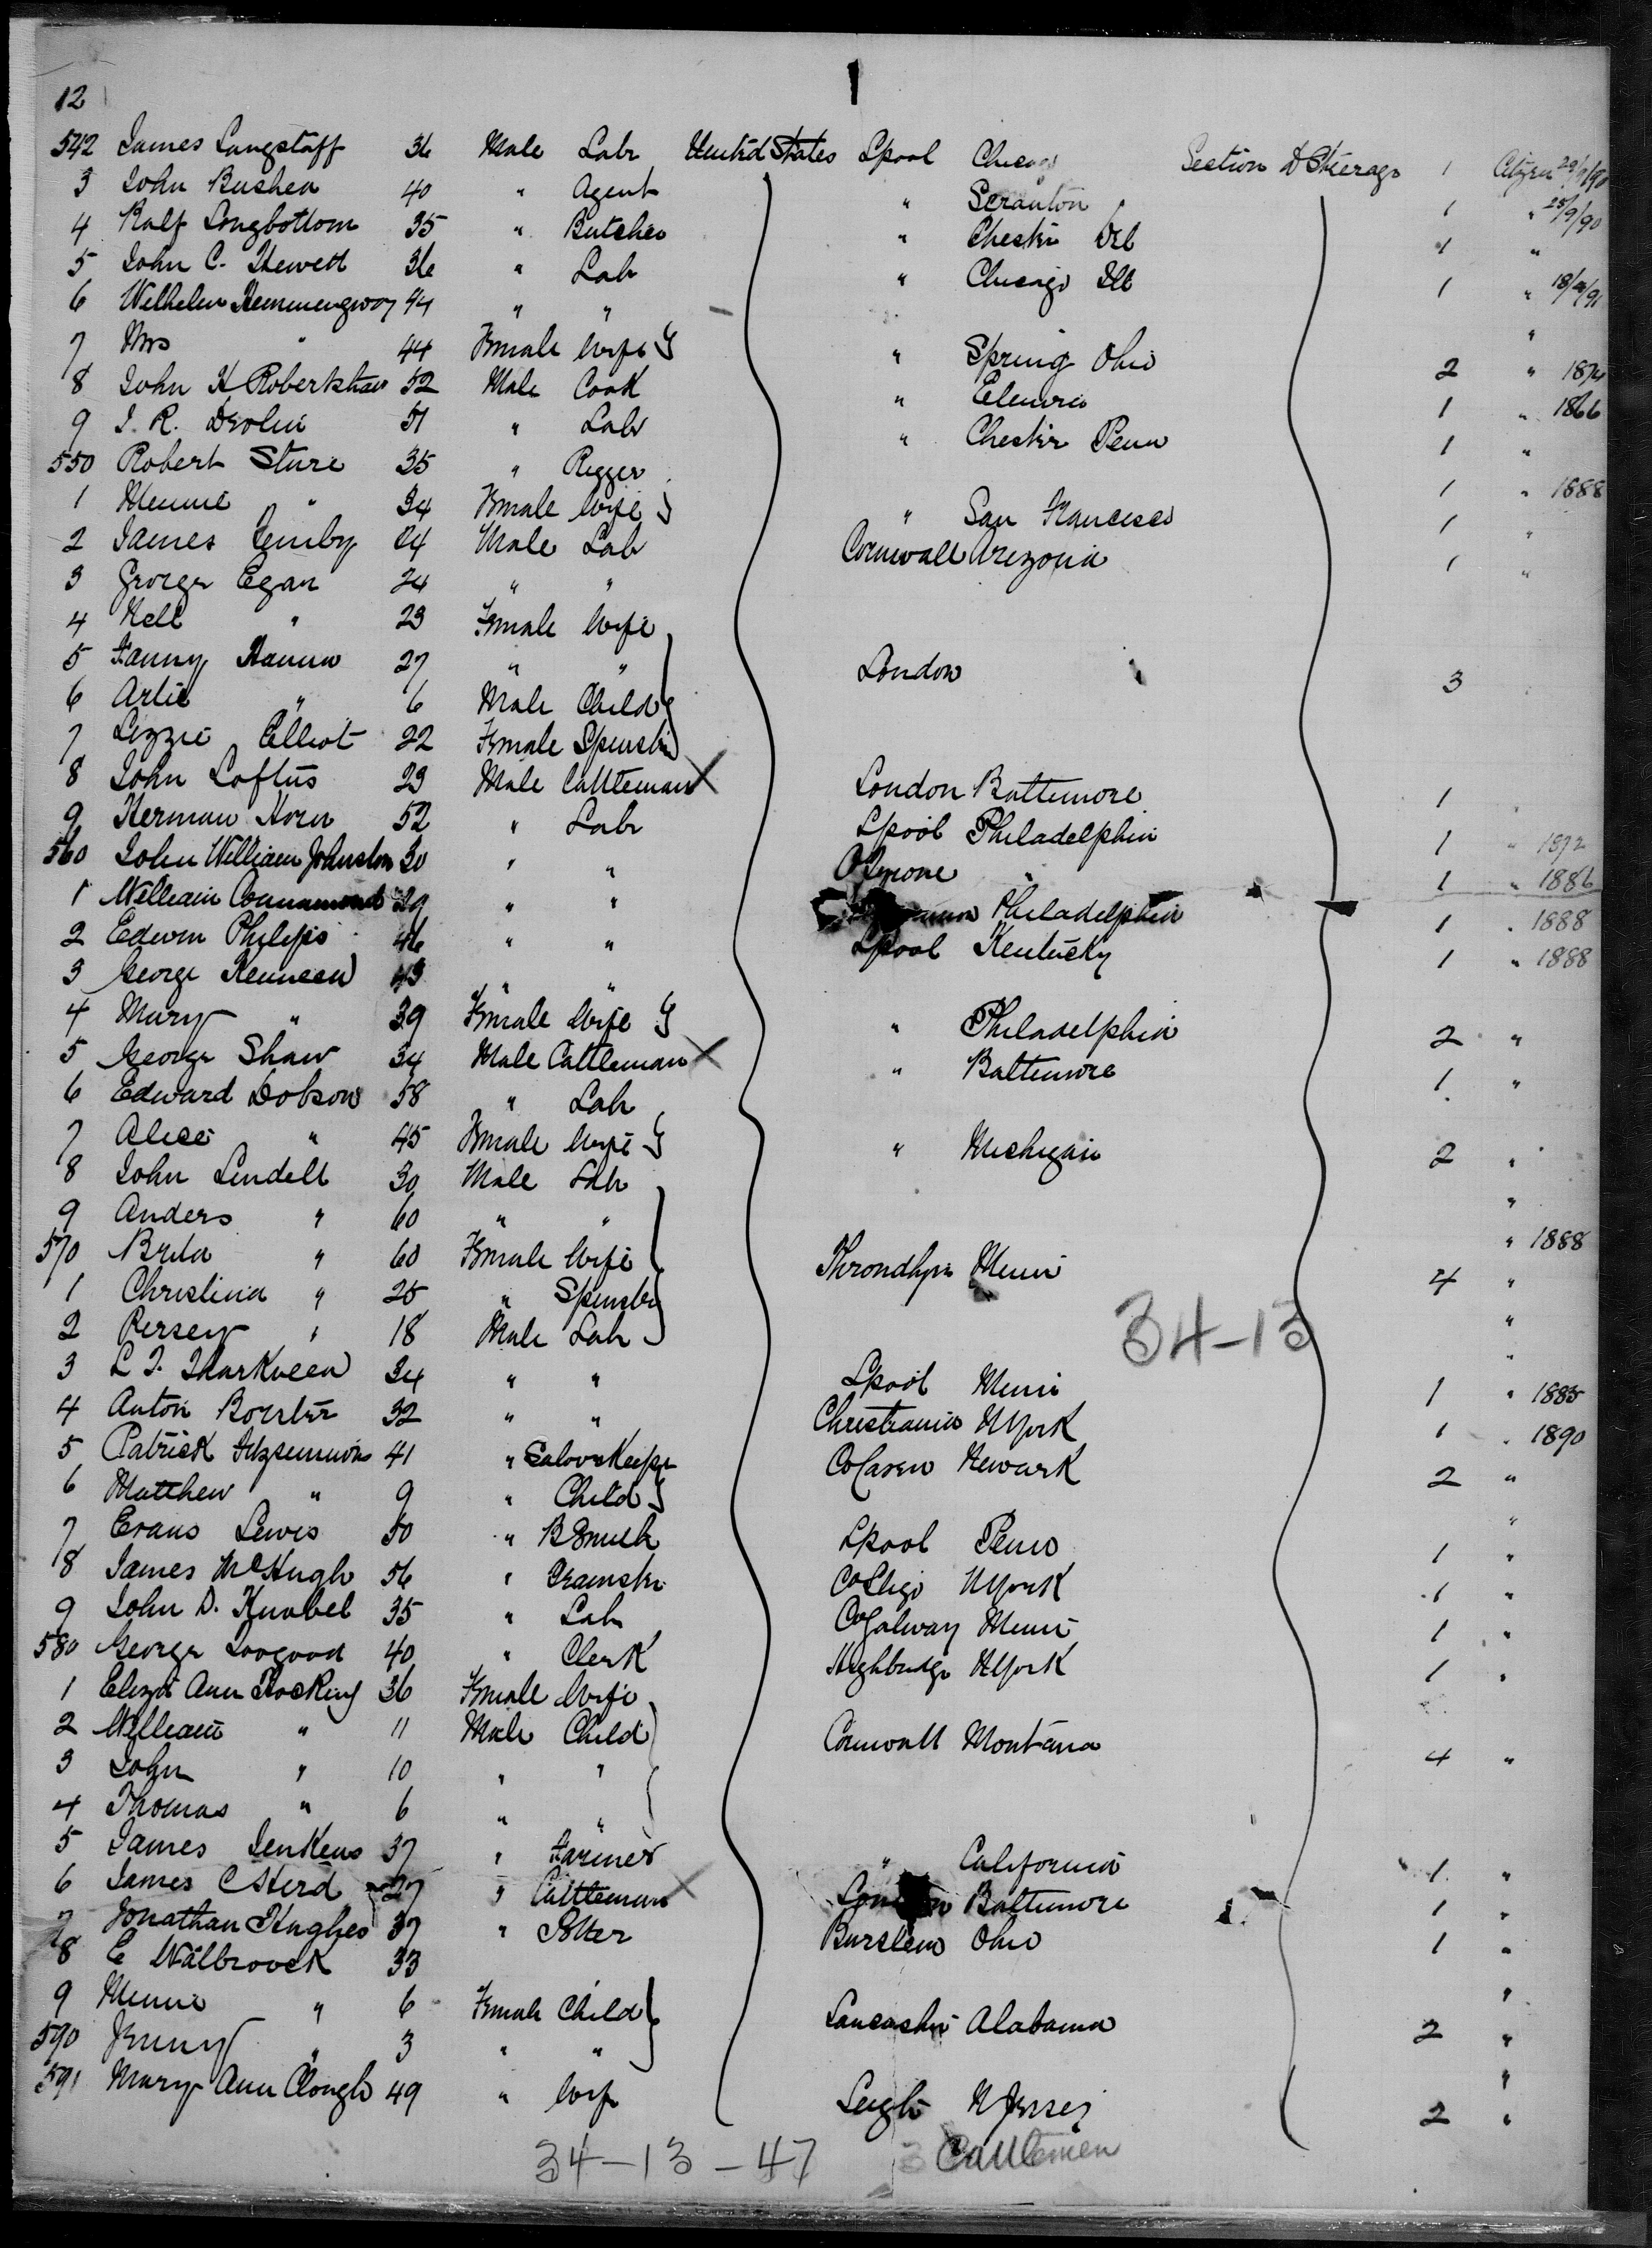 12
542 James Langstaff 36 Male Labr United States Lpool Chicago Section D Steerage 1 Citizen
3 John Bushen 40 " Agent " Scranton 1 " 25/9/90
4 Ralf Longbottom 35 " Butcher " Chester 1 "
5 John C. Hewett 36 " Labr " Chicago Ill 1 "
6 Wilhelm Hemmengway 44 " " "
7 Mrs " 44 Female Wife " Spring Ohio 2 " 1874
8 John H Robertshaw 52 Male Cook " Elmira 1 " 1866
9 J. R. Devlin 51 " Labr " Chester Penn 1 "
550 Robert Sture 35 " Rigger 1 " 1888
1 Minnie " 34 Female Wife " San Francisco 1 "
2 James Temby 24 Male Labr Cornwall Arizona 1 "
3 George Egan 24 " "
4 Nell " 23 Female Wife
5 Fanny Hannu 27 " " London 3
6 Artie " 6 Male Child
7 Lizzie Elliot 22 Female Spinster
8 John Loftus 23 Male Cattleman X London Baltimore 1
9 Herman Horn 52 " Labr Lpool Philadelphia 1 " 1872
560 John William Johnston 30 " " Co Tyrone " 1 " 1886
1 William 29 " " Philadelphia 1 " 1888
2 Edwin Philips 46 " " Lpool Kentucky 1 " 1888
3 George 43 " "
4 Mary " 39 Female Wife " Philadelphia 2 "
5 George Shaw 34 Male Cattleman X " Baltimore 1 "
6 Edward Dobson 58 " Labr
7 Alice " 45 Female Wife " Michigan 2 "
8 John Lindell 30 Male Labr
9 Anders " 60 " " "
570 Brita " 60 Female Wife " 1888
1 Christina " 25 " Spinster Throndhjm Minn 4 "
2 Persey " 18 Male Labr "
34-13
3 L J. 34 " " Lpool Minn 1 " 1885
4 Anton 32 " " Christiania N York 1 " 1890
5 Patrick Fitzsimmons 41 " Saloon Keeper Co Cavan Newark 2 "
6 Matthew " 9 " Child
7 Evans Lewis 50 " B Smith Lpool Penn 1 "
8 James McHugh 56 " Teamster Co Sligo N York 1 "
9 John D. Knabel 35 " Labr Co Galway Minn 1 "
580 George Loogood 40 " Clerk Highbridge N York 1 "
1 Eliza Ann Hocking 36 Female Wife
2 William " 11 Male Child Cornwall Montana 4 "
3 John " 10 " "
4 Thomas " 6 " "
5 James Jenkens 37 " Farmer " California 1 "
6 James C Herd 27 " Cattleman X London Baltimore 1 "
7 Jonathan Hughes 37 " Potter Burslem Ohio 1 "
8 C Walbroock 33
9 Minnie " 6 Female Child Lancashir Alabama 2 "
590 Jenny " 3 " "
591 Mary Ann Clough 49 " Wife Leigh N Jersey 2 "
34-13-47 3 Cattlemen